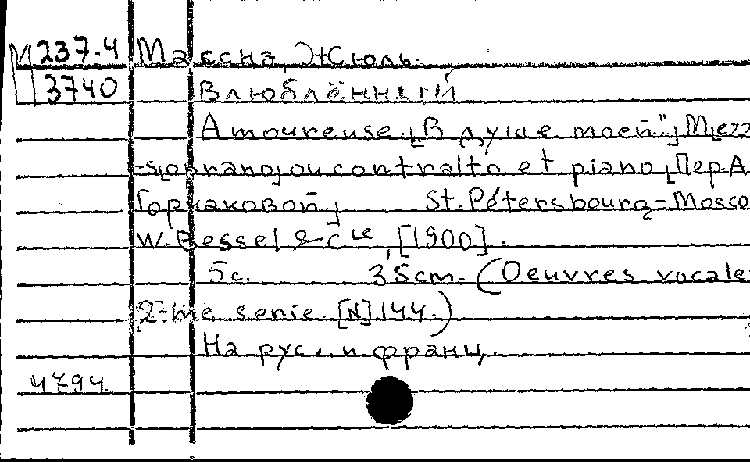 М 237-4 Массна, Жюль.
3740 Влюблённый
Amoureuse „В душе моей"; Mezz
-s[oprano] ou contralto et piano, [Пер. А.
Горчаковой] St. Pétersbourg-Mosco
W. Bessel & Cie, [1900].
5с. 35cm. (Oeuvres vocale
2-me serie. [N] 144.)
На рус. и франц.
4794